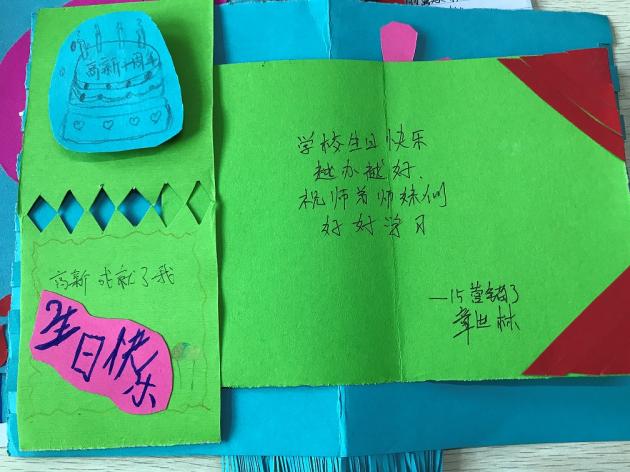 高新十周年
高新 成就了我
生日快乐
学校生日快乐
越办越好.
祝师弟师妹们
好好学习
章世林